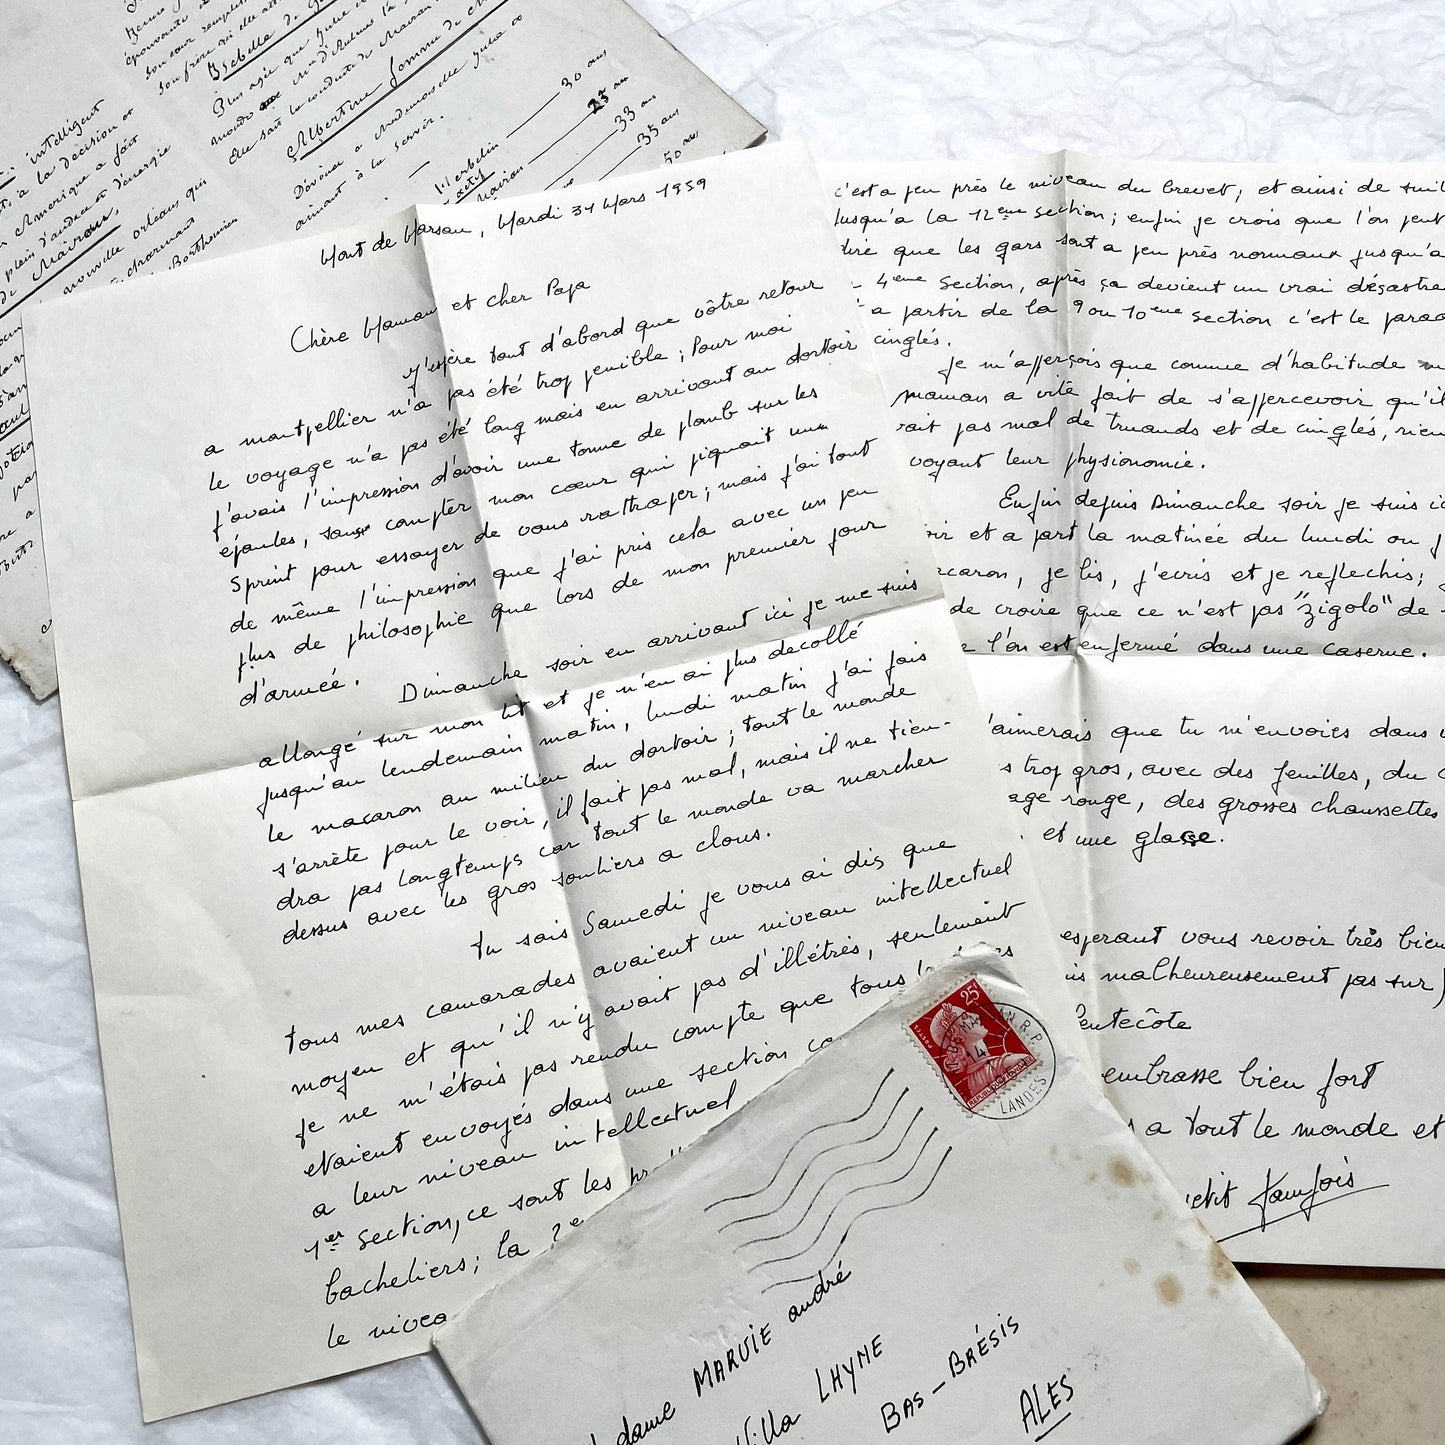 épouvanté
son cœur
son frère qui elle
Isabelle de
Plus agée que Julie
monde
Elle sait la conduite de Mairan
Albertine femme de
Dévouée a Mademoiselle Julia
aimant à la servir.
30 ans
25 ans
33 ans
35 ans
50 ans
intelligent
à la décision et
Amerique a fait
plein d'audace et d'énergie
de Mairan,
nouvelle orléans qui
charmant
Mont de Marsan, Mardi 31 Mars 1959
Chère Maman et cher Papa
J'espère tout d'abord que vôtre retour
a montpellier n'a pas été trop penible ; Pour moi
le voyage n'a pas été long mais en arrivant au dortoir
j'avais l'impression d'avoir une tonne de plomb sur les
épaules, sans compter mon cœur qui piquait un
Sprint pour essayer de vous rattraper ; mais j'ai tout
de même l'impression que j'ai pris cela avec un peu
plus de philosophie que lors de mon premier jour
d'armée.
Dimanche soir en arrivant ici je me suis
allongé sur mon lit et je n'en ai plus decollé
jusqu'au lendemain matin, lundi matin j'ai fais
le macaron au milieu du dortoir ; tout le monde
s'arrête pour le voir, il fait pas mal, mais il ne tien-
dra pas longtemps car tout le monde va marcher
dessus avec les gros souliers a clous.
Tu sais Samedi je vous ai dis que
tous mes camarades avaient un niveau intellectuel
moyen et qu'il n'y avait pas d'illétrés, seulement
je ne m'étais pas rendu compte que tous les
etaient envoyés dans une section
a leur niveau intellectuel
1er section, ce sont les
bacheliers ; la 2e
le nivea
c'est a peu près le niveau du brevet, et ainsi de suite
Jusqu'a la 12eme section ; enfin je crois que l'on peut
dire que les gars sont a peu près normaux jusqu'a
4eme section, après ça devient un vrai désastre
a partir de la 9 ou 10eme section c'est le parad
cinglés.
Je m'apperçois que comme d'habitude
maman a vite fait de s'appercevoir qu'il
vait pas mal de truands et de cinglés, rien
voyant leur physionomie.
Enfin depuis Dimanche soir je suis ic
oir et a part la matinée du lundi ou j
acaron, je lis, j'ecris et je reflechis ;
de croire que ce n'est pas "zigolo" de
l'on est enfermé dans une caserne.
'aimerais que tu m'envoies dans
s trop gros, avec des feuilles, du
age rouge, des grosses chaussettes
et une glace.
esperant vous revoir très bien
is malheureusement pas sur
Pentecôte
embrasse bien fort
a tout le monde et
petit
25F
POSTES
REPUBLIQUE FRANÇAISE
MARSAN R.P.
14
LANDES
dame MARVIE andré
Villa LHYME
BAS-BRÉSIS
ALES